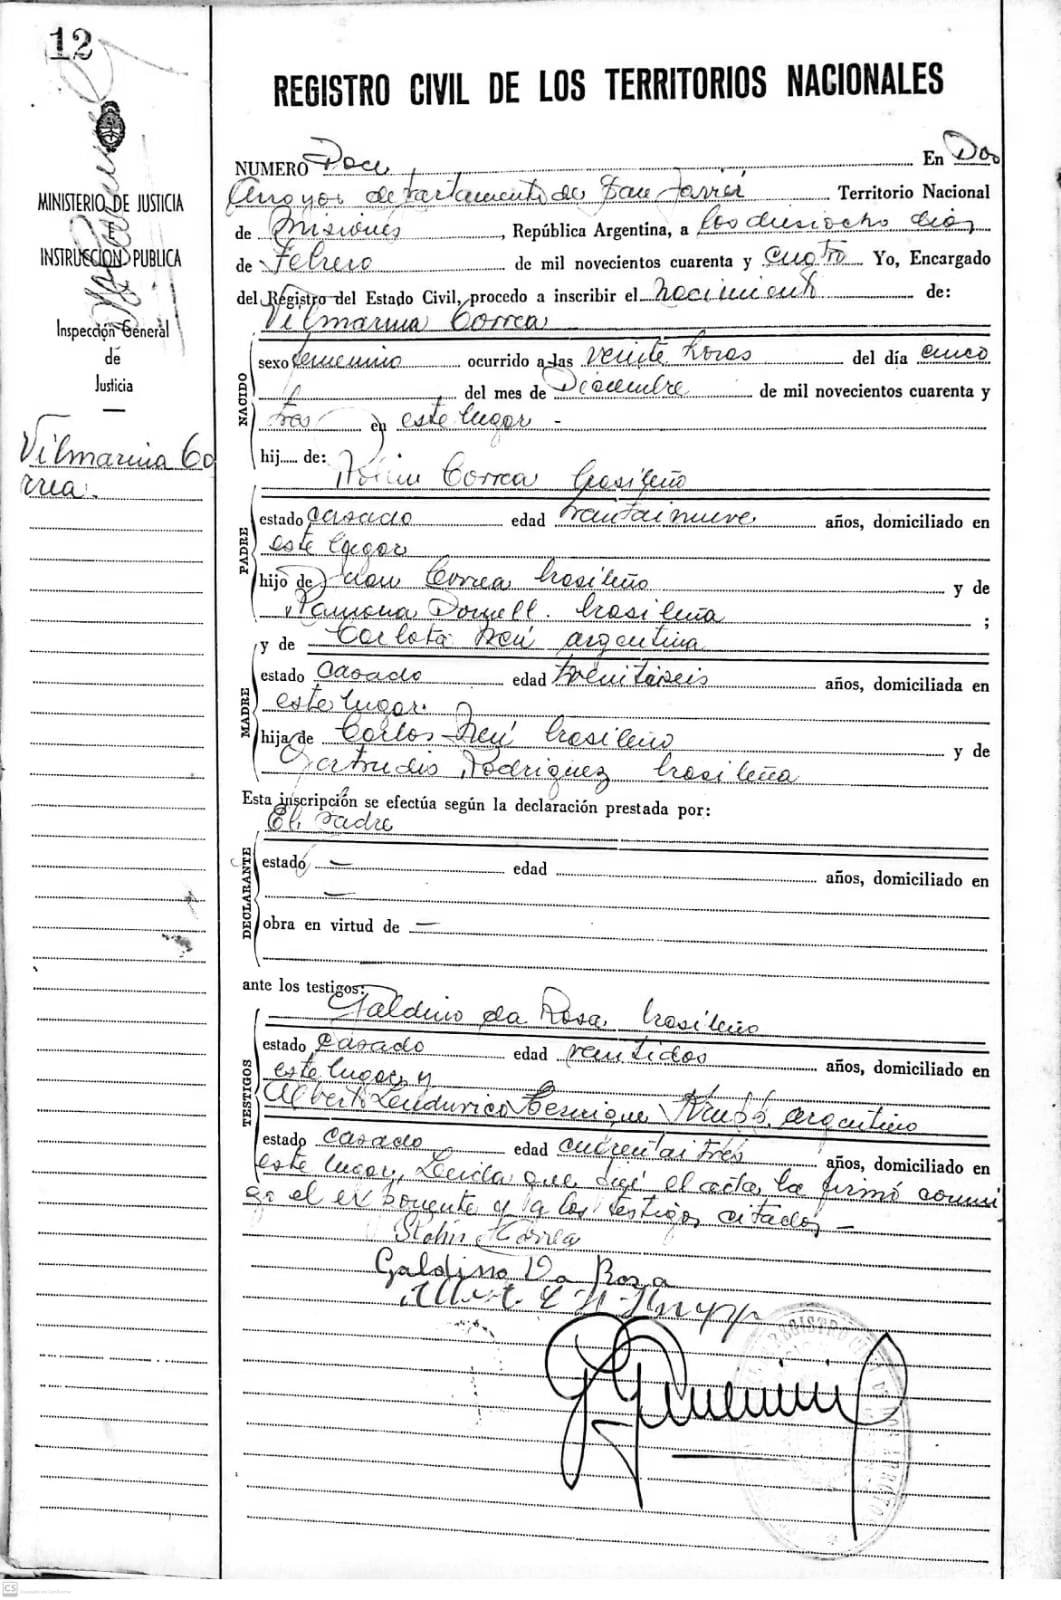 12
REGISTRO CIVIL DE LOS TERRITORIOS NACIONALES
MINISTERIO DE JUSTICIA
E
INSTRUCCION PUBLICA
Inspección General
de
Justicia
Vilmarina Co
rrea.
NUMERO Doce En Dos
Arroyos departamento de San Javier Territorio Nacional
de Misiones, República Argentina, a los diesiocho dias
de Febrero de mil novecientos cuarenta y cuatro Yo, Encargado
del Registro del Estado Civil, procedo a inscribir el nacimiento de:
Vilmarina Correa
NACIDO
sexo femenino ocurrido a las veinte horas del día cinco
del mes de Diciembre de mil novecientos cuarenta y
tres en este lugar -
hij... de:
Correa brasileño
PADRE
estado casado edad trentainueve años, domiciliado en
este lugar
hijo de Juan Correa brasileño y de
Ramona brasileña ;
y de Carlota argentina
MADRE
estado casado edad trentaiseis años, domiciliada en
este lugar.
hija de Carlos brasileño y de
Gertrudis Rodriguez brasileña
Esta inscripción se efectúa según la declaración prestada por:
El Padre
DECLARANTE
estado — edad años, domiciliado en
—
obra en virtud de —
ante los testigos:
TESTIGOS
Galdino da Rosa brasileño
estado casado edad ventidos años, domiciliado en
este lugar y
Alberto Henrique argentino
estado casado edad cuarentaitres años, domiciliado en
este lugar, Leida que fué el acta, la firmó conmi
go el exponente y a los testigos citados -
Correa
Galdino Da Roza
CS